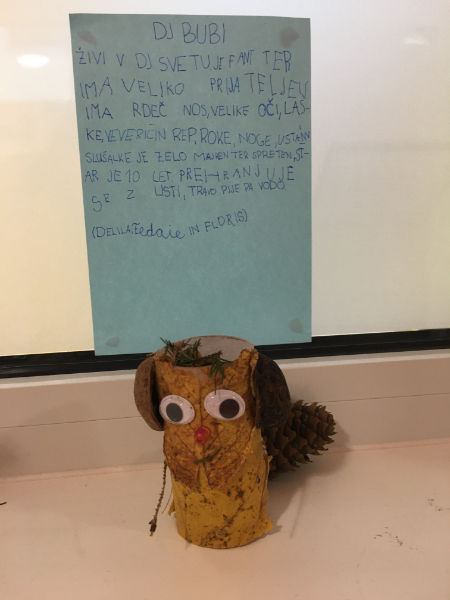 DJ BUBI
ŽIVI V DJ SVETU, JE FANT TER
IMA VELIKO PRIJATELJEV
IMA RDEČ NOS, VELIKE OČI, LAS-
KE, VEVERIČIN REP, ROKE, NOGE, USTA IN
SLUŠALKE JE ZELO MAJHEN TER SPRETEN, ST-
AR JE 10 LET, PREHRANJUJE
SE Z LISTI, TRAVO PIJE PA VODO
(DELILA, IN FLORIS)